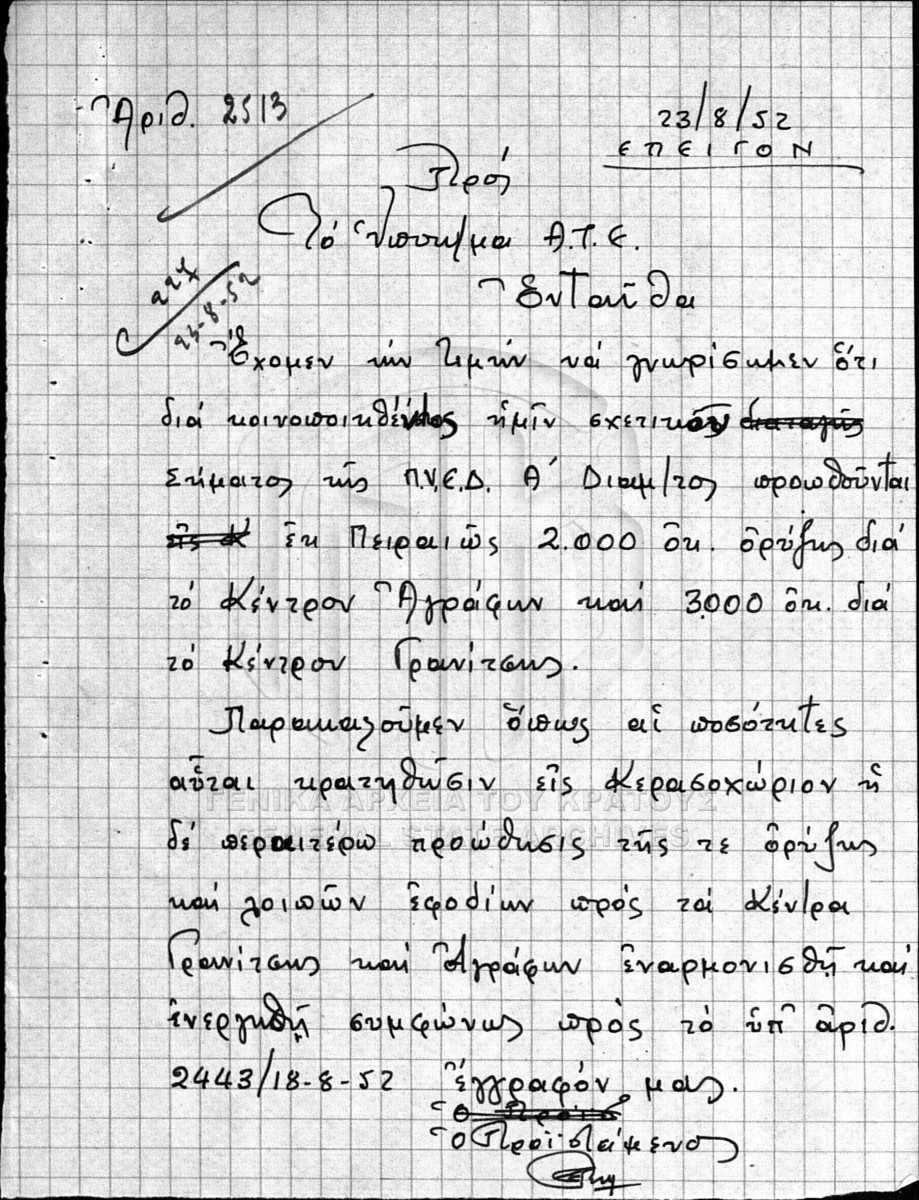 Ἀριθ. 2513
23/8/52
ΕΠΕΙΓΟΝ
Πρός
Τό Ὑποκ/μα Α.Τ.Ε.
Ἐνταῦθα
227
23-8-52
Ἔχομεν τήν τιμήν νά γνωρίσωμεν ὅτι
διά κοινοποιηθέντος ἡμῖν σχετικοῦ διαταγῆς
Σήματος τῆς Π.Υ.Ε.Δ. Α΄ Διαμ/τος προωθοῦνται
εἰς Κ ἐκ Πειραιῶς 2.000 ὀκ. ὀρύζης διά
τό Κέντρον Ἀγράφων καί 3000 ὀκ. διά
τό Κέντρον Γρανίτσης.
Παρακαλοῦμεν ὅπως αἱ ποσότητες
αὗται κρατηθῶσιν εἰς Κερασοχώριον ἡ
δέ περαιτέρω προώθησις τῆς τε ὀρύζης
καί λοιπῶν ἐφοδίων πρός τά Κέντρα
Γρανίτσης καί Ἀγράφων ἐναρμονισθῇ καί
ἐνεργηθῇ συμφώνως πρός τό ὑπ' ἀριθ.
2443/18-8-52 ἔγγραφόν μας.
Ὁ Προϊσ
Ὁ Προϊστάμενος
ΓΕΝΙΚΑ ΑΡΧΕΙΑ ΤΟΥ ΚΡΑΤΟΥΣ
GENERAL STATE ARCHIVES